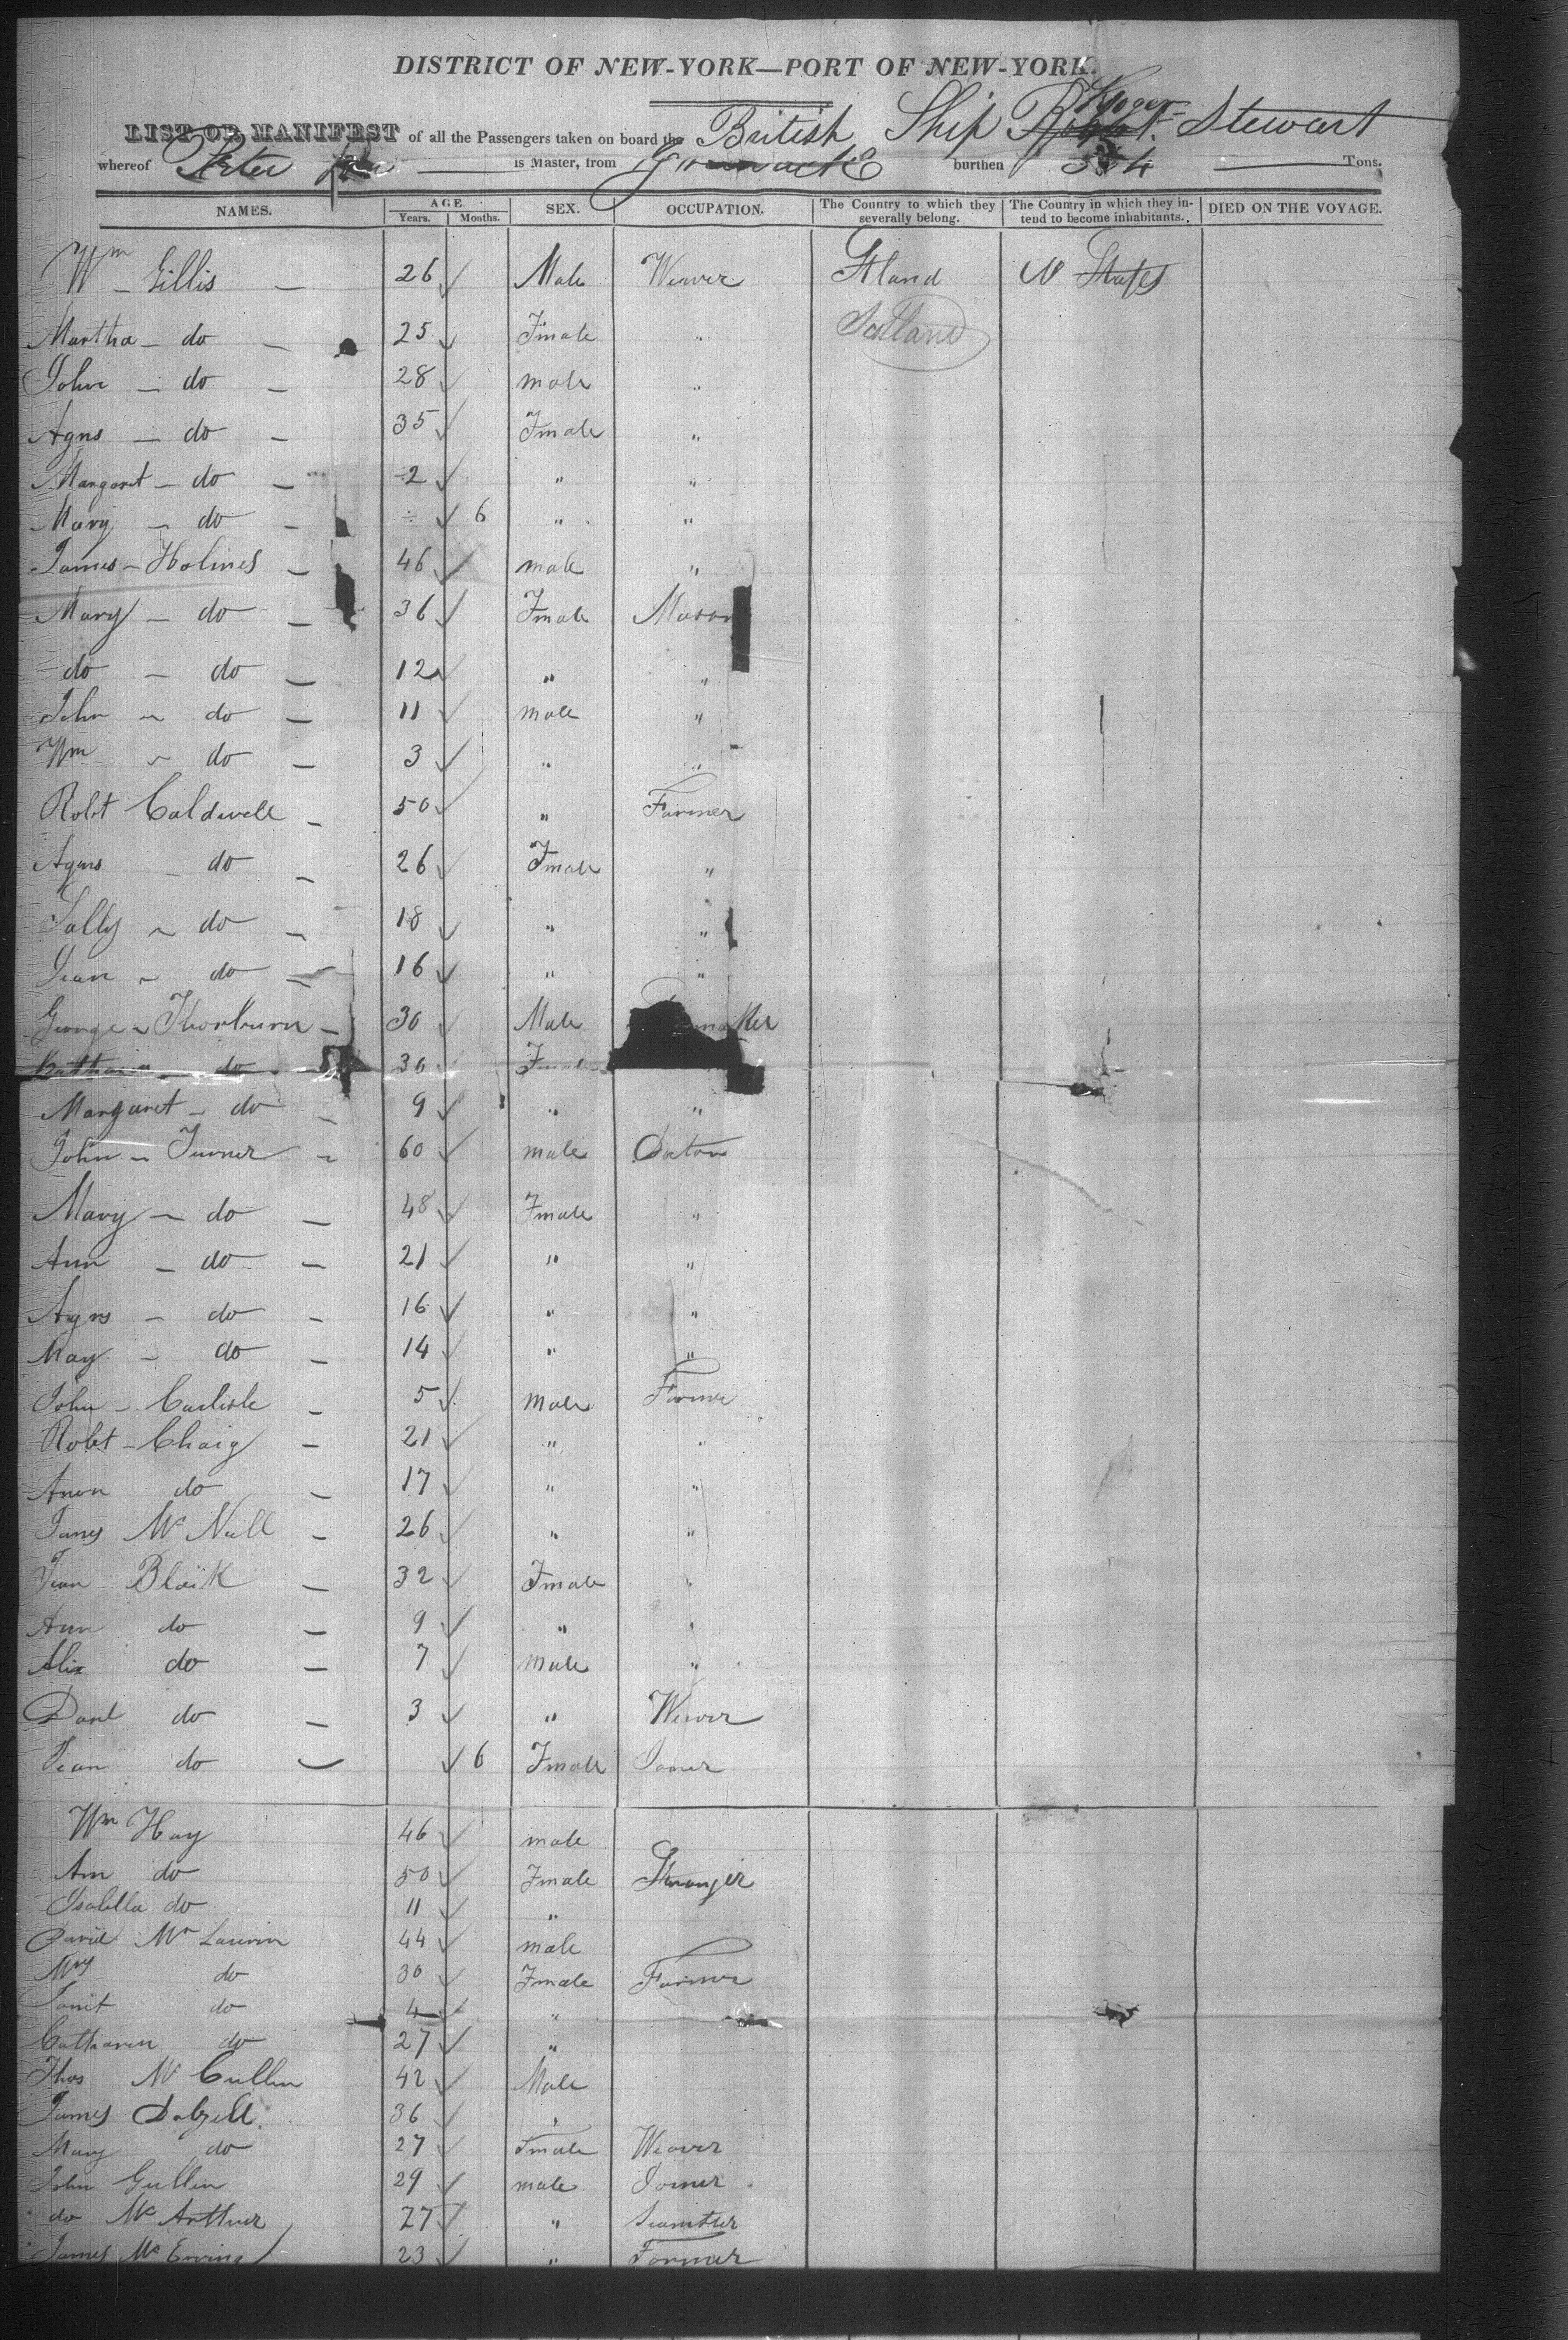 DISTRICT OF NEW-YORK—PORT OF NEW-YORK.
LIST OR MANIFEST of all the Passengers taken on board the British Ship Roger Stewart
whereof Peter is Master, from Greenock burthen Tons.
NAMES. AGE Years. Months. SEX. OCCUPATION. The Country to which they severally belong. The Country in which they intend to become inhabitants. DIED ON THE VOYAGE.
Wm Gillis 26 Male Weaver States
Martha do 25 Fmale " Scotland
John do 28 male "
Agns do 35 Fmale "
Margaret do 2 " "
Mary do 6 " "
James Holmes 46 male "
Mary do 36 Fmale Mason
do do 12 " "
John do 11 male "
Wm do 3 " "
Robt Caldwell 50 " Farmer
Agns do 26 Fmale "
Sally do 18 " "
Jean do 16 " "
George Thorburn 30 Male maker
do 30 Fmale
Margaret do 9 " "
John Turner 60 male
Mary do 48 Fmale "
Ann do 21 " "
Agns do 16 " "
May do 14 " "
John Carlisle 5 male Farmer
Robt Chaig 21 " "
do 17 " "
James Mc Null 26 " "
Jean Blaik 32 Fmale "
Ann do 9 " "
Alix do 7 male "
Danl do 3 " Weaver
Jean do 6 Fmale Joner
Wm Hay 46 male
Ann do 50 Fmale
Isabella do 11 "
David Mc 44 male
Mry do 30 Fmale Farmer
Janit do 4 "
Catharen do 27 "
Thos Mc Cullen 42 Male
James Dalzell 36
Mary do 27 Fmale Weaver
John Gullin 29 male Joiner
do Mc Arthur 27 "
James Mc Ewing 23 " Formar